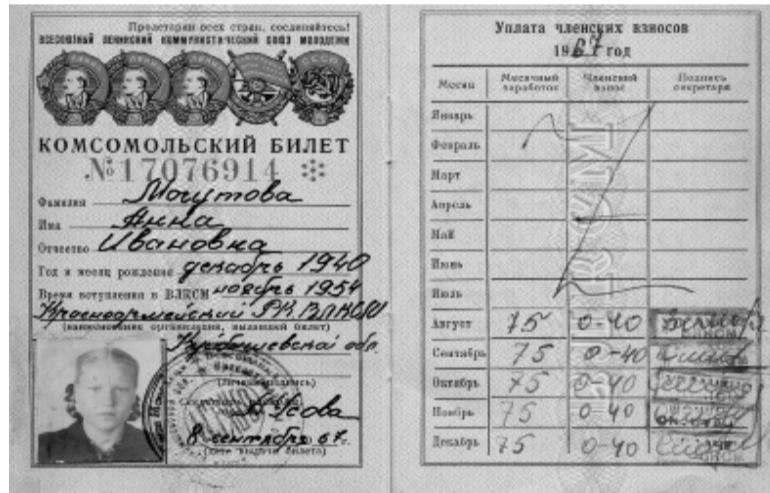 Пролетарии всех стран, соединяйтесь!
ВСЕСОЮЗНЫЙ ЛЕНИНСКИЙ КОММУНИСТИЧЕСКИЙ СОЮЗ МОЛОДЕЖИ
КОМСОМОЛЬСКИЙ БИЛЕТ
№17076914
Фамилия Могутова
Имя Анна
Отчество Ивановна
Год и месяц рождения декабрь 1940
Время вступления в ВЛКСМ ноябрь 1954
Красноармейский РК ВЛКСМ
(наименование организации, выдавшей билет)
Куйбышевской обл.
(личная подпись)
Усова
8 сентября 67 г.
(дата выдачи билета)
Уплата членских взносов
1967 год
Месяц Месячный заработок Членский взнос Подпись секретаря
Январь
Февраль
Март
Апрель
Май
Июнь
Июль
Август 75 0-40
Сентябрь 75 0-40
Октябрь 75 0-40
Ноябрь 75 0-40
Декабрь 75 0-40